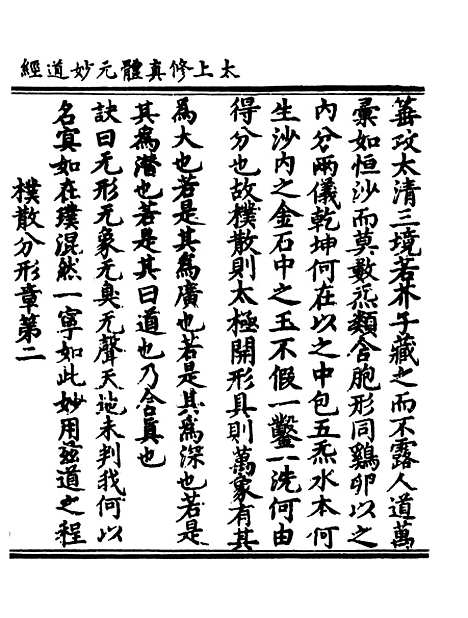 太上修真體元妙道經
太清三境若芥子藏之而不露人道萬
彙如恒沙而莫數炁類含胞形同鷄卵以之
內分兩儀乾坤何在以之中包五炁水本何
生沙內之金石中之玉不假一鑿一洗何由
得分也故樸散則太極開形具則萬象有其
為大也若是其為廣也若是其為深也若是
其為潛也若是其曰道也乃含眞也
訣曰无形无象无臭无聲天地未判我何以
名寘如在璞混然一寧如此妙用茲道之程
樸散分形章第二